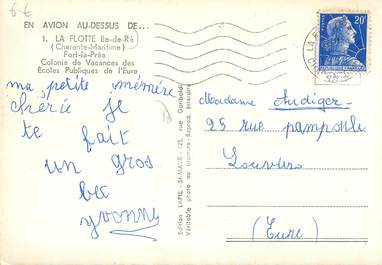 6-€
EN AVION AU-DESSUS DE...
1. LA FLOTTE Ile-de-Ré
(Charente-Maritime)
Fort-la-Prée
Colonie de Vacances des
Écoles Publiques de l'Eure
ma petite mémère
chérie je
te fait
un gros
bec
yvonne
Edition LAPIE - St-MAUR - 123, rue Garibaldi
Véritable photo au bromure - Reprod. Interdite
20F
LA F
Madame Audiger
25 rue pampoule
Louviers
(Eure)